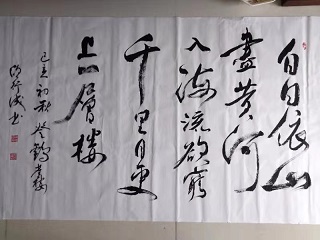 白日依山
盡黄河
入海流欲窮
千里目更
上一層樓
己亥初秋登鸛雀樓